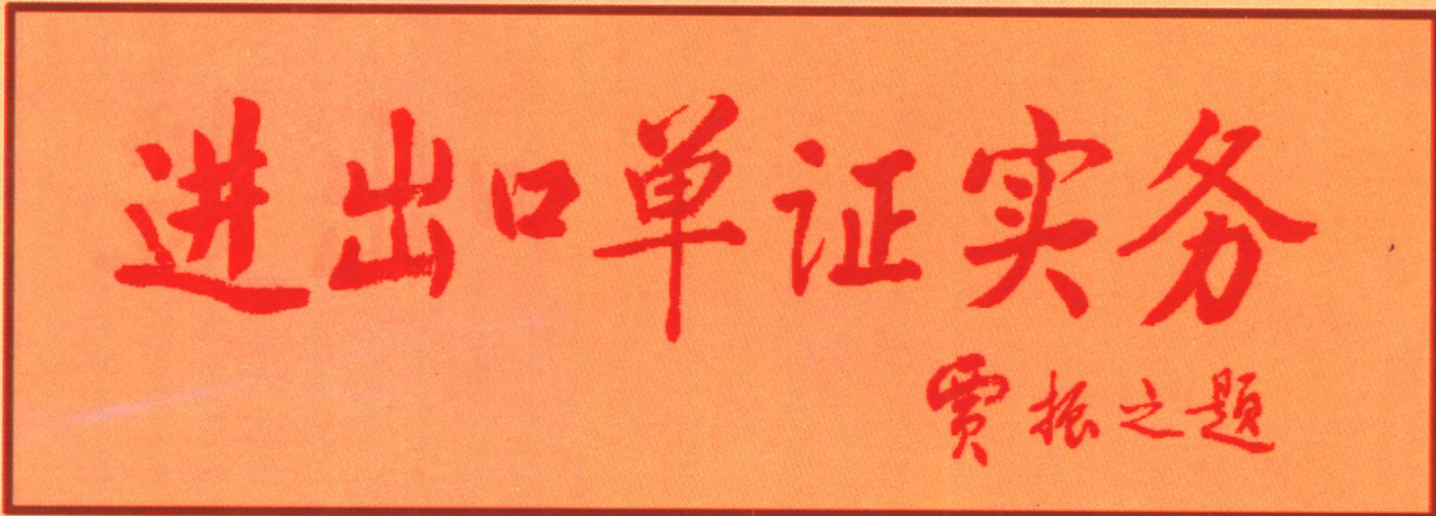 进出口单证实务
贾振之题